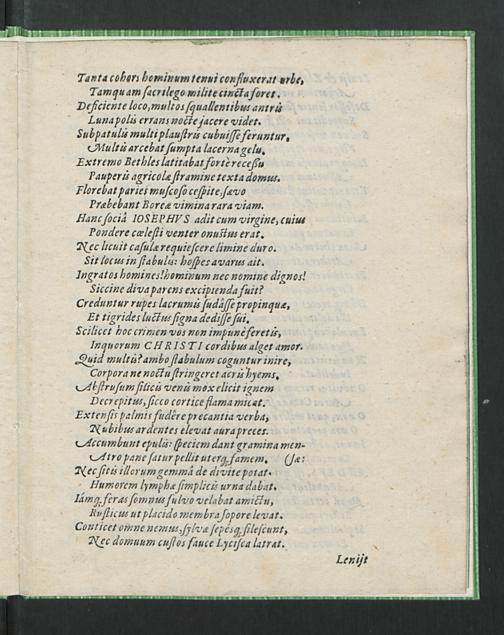 Tanta cohors hominum tenui confluxerat urbe,
Tamquam sacrilego milite cincta foret.
Deficiente loco, multos squallentibus antris
Luna polis errans nocte jacere videt.
Subpatulis multi plaustris cubuisse feruntur,
Multis arcebat sumpta lacerna gelu.
Extremo Bethles latitabat fortè recessu
Pauperis agricolæ stramine texta domus.
Florebat paries muscoso cespite, sævo
Præbebant Boreæ vimina rara viam.
Hanc sociâ IOSEPHVS adit cum virgine, cuius
Pondere cœlesti venter onustus erat.
Nec licuit casulæ requiescere limine duro.
Sit locus in stabulis: hospes avarus ait.
Ingratos homines! hominum nec nomine dignos!
Siccine diva parens excipienda fuit?
Creduntur rupes lacrumis sudâsse propinquæ,
Et tigrides luctus signa dedisse sui.
Scilicet hoc crimen vos non impunè feretis,
Inquorum CHRISTI cordibus alget amor.
Quid multis? ambo stabulum coguntur inire,
Corpora ne noctu stringeret acris hyems.
Abstrusum silicis venis mox elicit ignem
Decrepitus, sicco cortice flama micat.
Extensis palmis fudêre precantia verba,
Nubibus ardentes elevat aura preces.
Accumbunt epulis: speciem dant gramina men-
Atro pane satur pellit uterq, famem. (sæ:
Nec sitis illorum gemmâ de divite potat.
Humorem lymphæ simplicis urna dabat.
Iamq, feras somnus fulvo velabat amictu,
Rusticus ut placido membra sopore levat.
Conticet omne nemus, sylvæ sepésq, silescunt,
Nec domuum custos fauce Lycisca latrat.
Lenijt